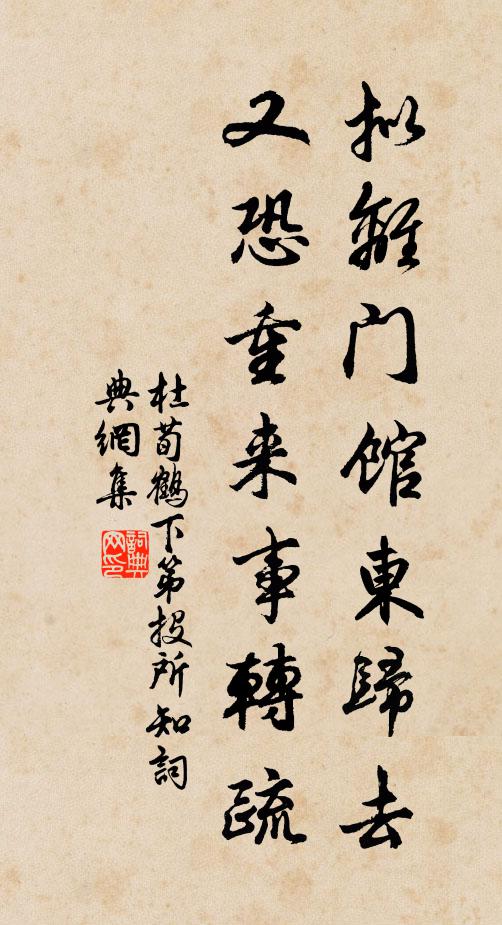 拟離门館東歸去
又恐重来事轉疏
杜荀鶴下第投所知詞
典網集
詞典
网印